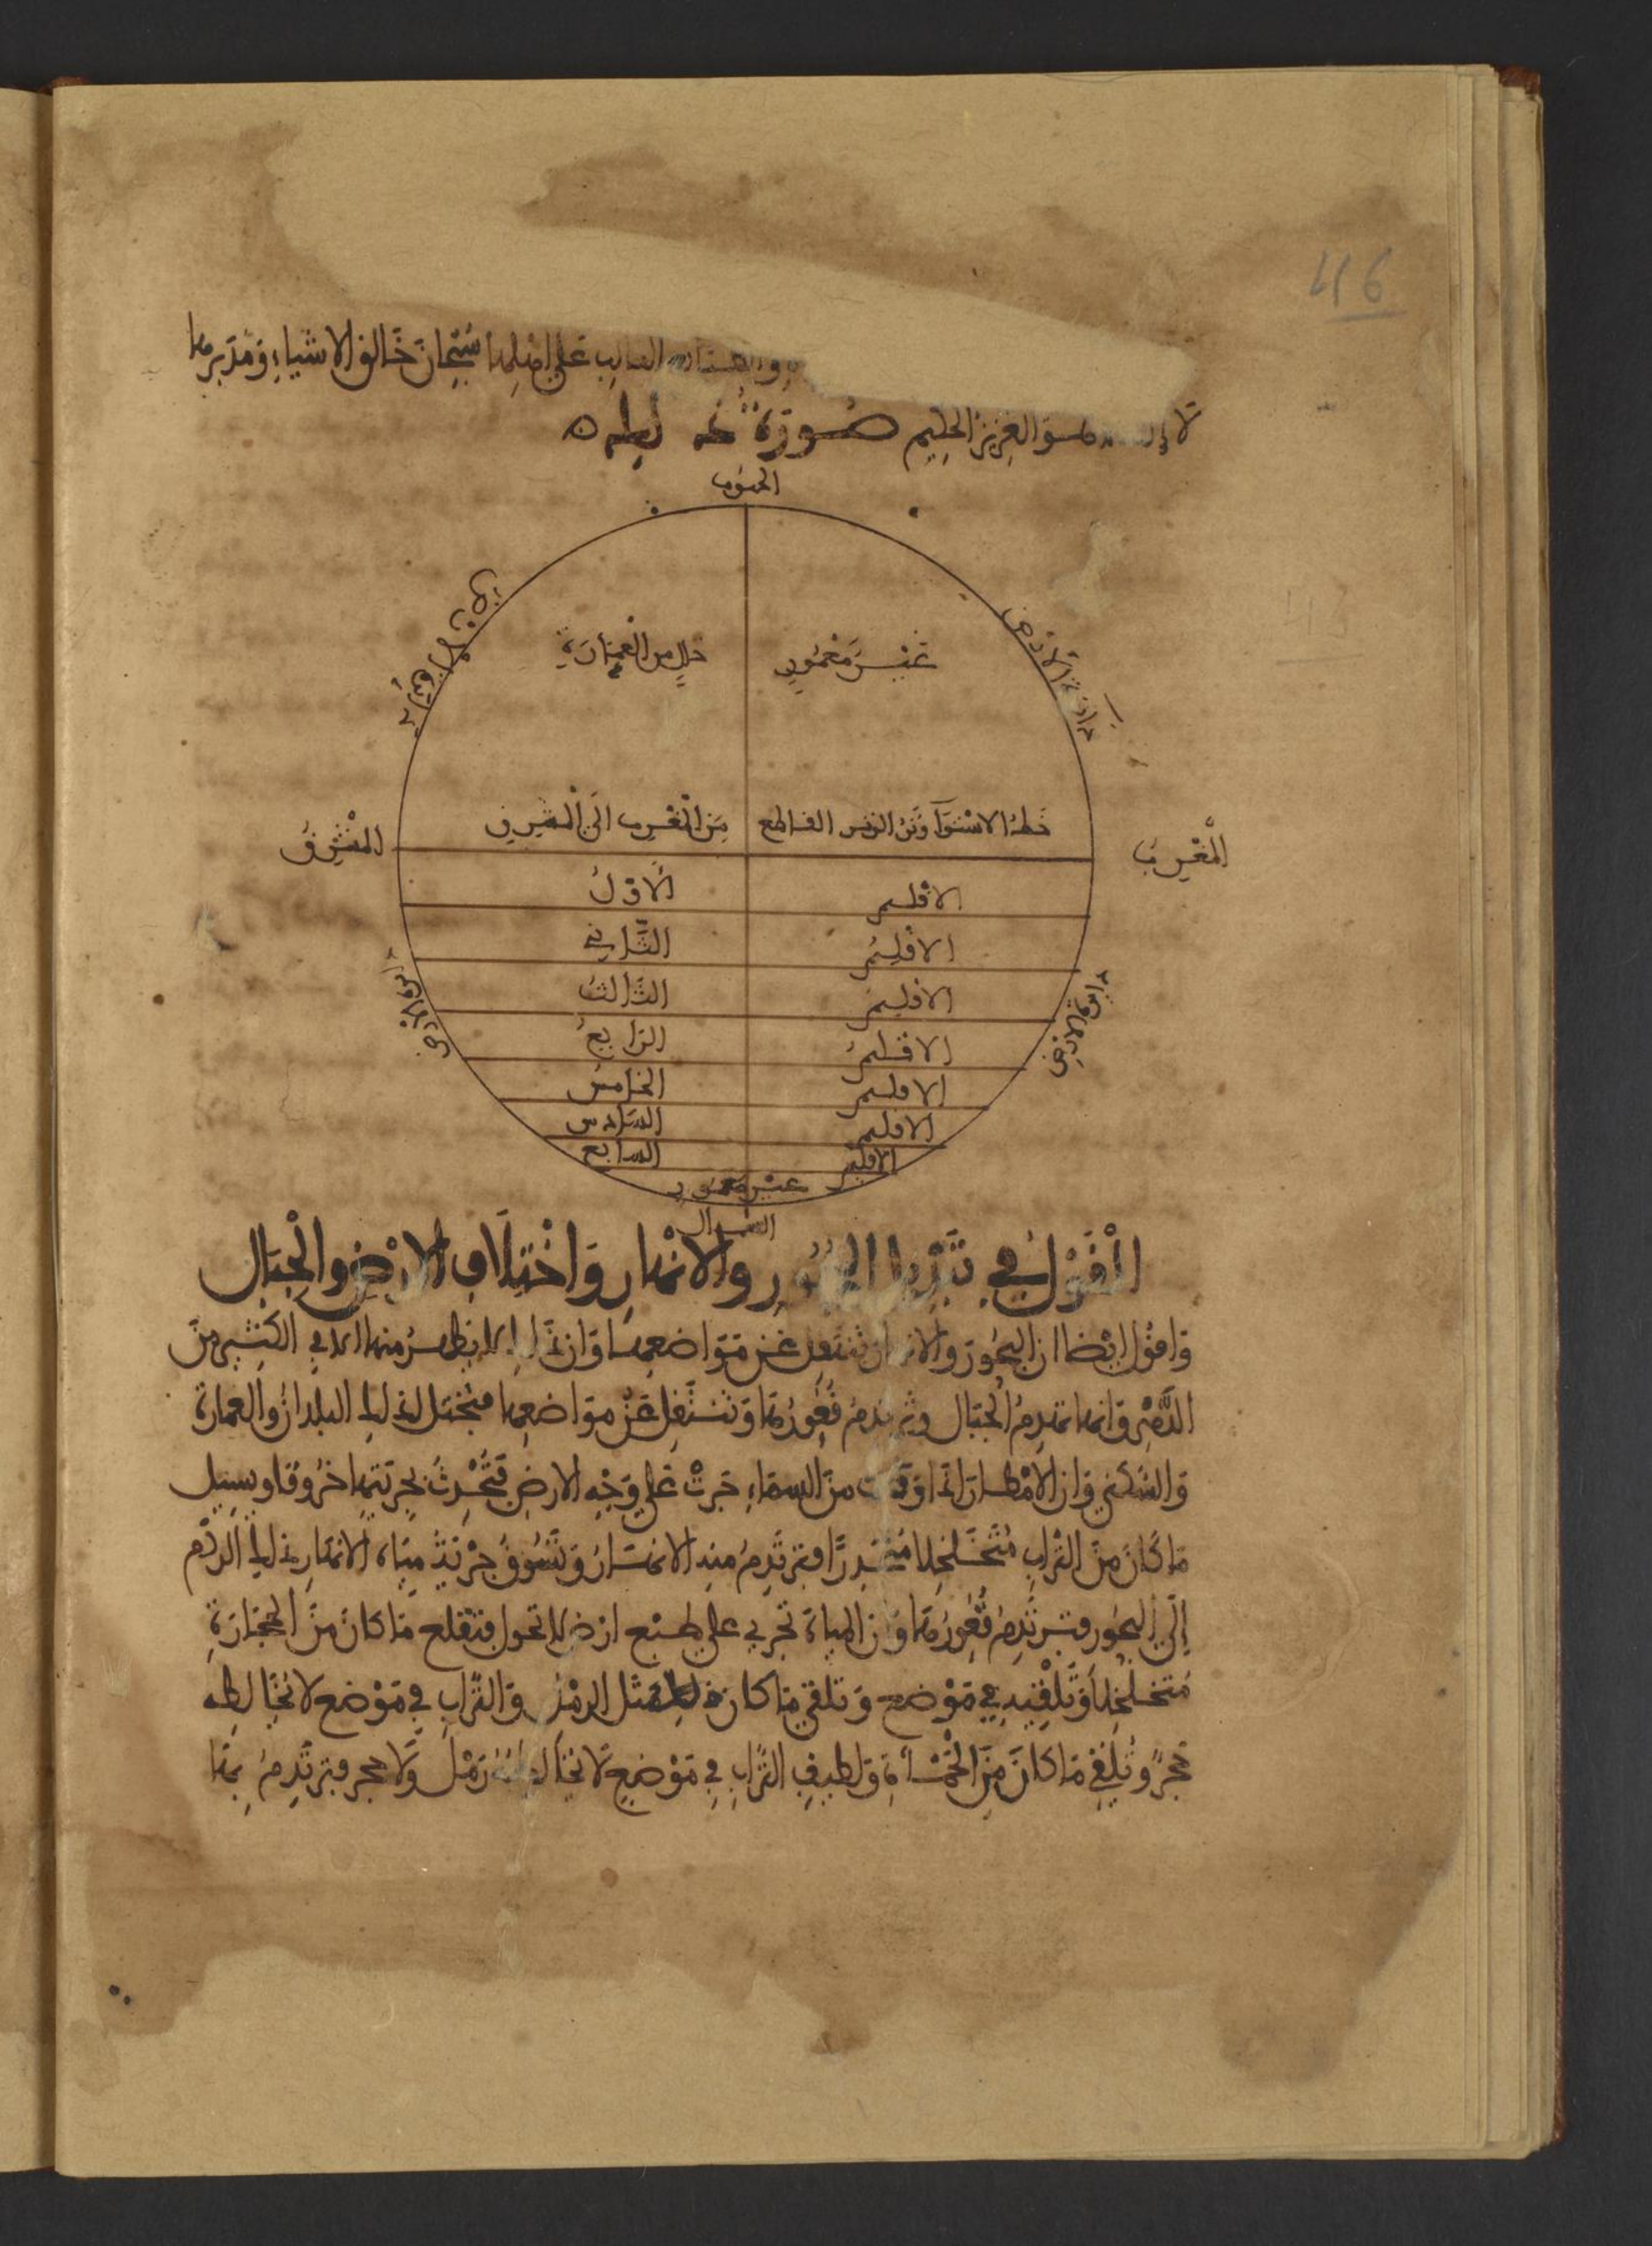 46
الغالب على اهلها سُبْحَانَ خَالق الاشياءِ وَمُدَبرها
لَا إله هو العزيزُ الحكيم صُورَةُ ذلك
الجنوب
خالٍ من الْعِمَارَةِ
غَيْرَ مَعْمُورٍ
دائرة الأَرضِ
خَطُّ الاسْتوَآ وَتَرُ القوس القاطع
مِنَ الْمَغْرِب الَى الْمَشرِق
الْمَشْرِقُ
الْمَغْرِبُ
الاقْليم
الاوّلُ
الاقْلِيمُ
الثَّانِي
الاقليمُ
الثَّالثُ
الاقليمُ
الرّابعُ
الاقليم
الخامسُ
الاقليم
السَّادس
الاقليم
السابع
دائرة الارضِ
غير معمور
الشمال
الْقَوْلُ فِي والانْهارِ وَاخْتِلَافِ الارْضِ والْجِبَال
وَاقُولُ ايْضًا ان البحُورَ والانهار تَنتَقِلُ عَن مَوَاضعِهَا وَان ذَلِكَ لا يَظهرُ منها الا في الكَثِيرِ مِنَ
الدَّهْرِ وَانها تهَدِمُ الجبَال قُعُورُهَا وَتَنتَقِلُ عَنْ مَوَاضعِها فيَختل لذلك البلدانُ والعمارة
وَالسُّكنى وَان الامْطارَ اذَا وَقَعَت منَ السمَاءِ جَرتْ عَلى وَجْهِ الارضِ فَتُحْدِثُ بجرْيَتِها خرُوقًا ويسيل
مَا كَانَ منَ التُّرابِ مُتَخَلخلا مُنْحَدرًا مِنه الانهَارُ وَتَسُوقُ جرْيَةُ مِيَاهِ الانهَارِ ذلكَ الرَّدْم
إلَى البحُور قُعُورُهَا وَان المياهَ تجري على طبْع ارْض لا تحول فتقلع مَا كانَ منَ الحجَارَةِ
مُتخلخلًا وَتُلْقِيهِ فِي مَوْضع وَتلقي مَا كان مثل الرمْل وَالتُّرَابِ فِي مَوْضع لا يُخَالطه
حَجرٌ وَتُلْقِي مَا كانَ مِنَ الْحَمْأةِ وَلطيف التُّرَابِ فِي مَوْضعٍ لَا يُخَالطهُ رَمْل وَلَا حجر